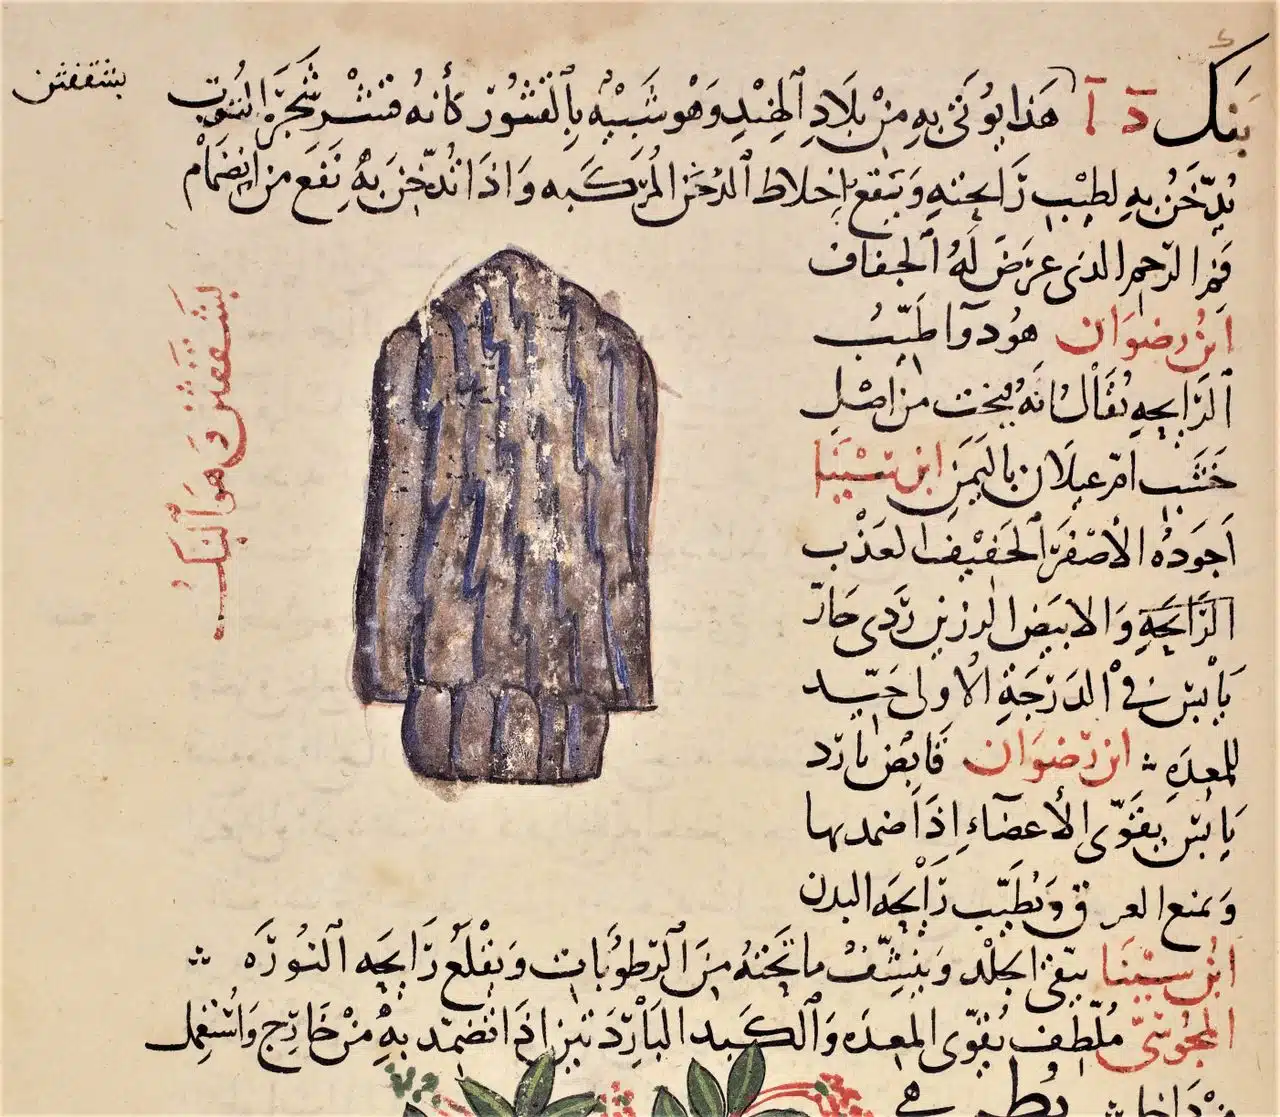 بنك د آ هذا يُوتى به مِنْ بلادِ ٱلهِنْدِ وَهْوَ شَبِيْهٌ بِٱلقُشُورْ كأنه قشْر شَجَرَة التُوت
يُدَّخَنُ بهِ لطِيْبِ رَايحتهِ وَيَقع بإخلاط ٱلدُخَنْ المُرَكَبه وَاذَا تُدُخّنَ بهِ نَفَع من انضمَام
فَم الرّحم الذى عرَضَ لَهُ ٱلجفاف
ابنُ رضوَان هُو دوآ طَيّبُ
ٱلرَّايحهِ يُقَالُ انَّهُ يُنحت من اصْلِ
خَشَب امّ عيلان باليَمَنِ ابن سيْنَا
اَجوَدُه الأصْفَر ٱلخَفِيْف العَذْب
الرَّايحَهِ وَالابيَض الرزين رَّدى حَارّ
يَابسْ فى ٱلدَرَجَةِ الأولى جَيّد
للمعِدَهِ ابن رّضوَان قَابضْ بارّد
يَابسْ يقَوّى الأعضَآءِ إذَا ضمد بها
وَيمنع العرق وَيُطَيّب رَّايحَه البدن
ابنُ سيْنَا ينقى الجلْد وَينشِّفْ ما تَحْتهُ مِنَ ٱلرّطوُبات وَيَقْلَع رَّايحه ٱلنُورَه
المجُوسىّ مُلّطف يُقوّى المعِدَه وَٱلكَبد البَاْرّدَتين اذا تضمّد بهِ مِنْ خَارّج وَاسْتُعْمِل
بشقفثن
بشقفثن د هوَ ٱلبنك